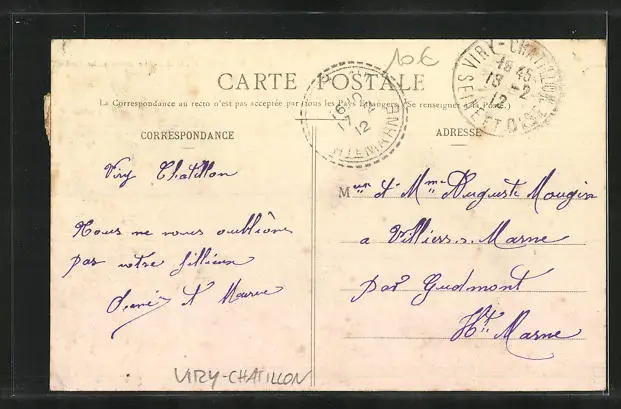 10€
CARTE POSTALE
La Correspondance au recto n'est pas acceptée par tous les Pays Étrangers (Se renseigner à la Poste)
CORRESPONDANCE
ADRESSE
VIRY-CHATILLON
18 45
18 -2
12
SEINE ET OISE
16
17 2
12
HTE MARNE
Viry Chatillon
Nous ne vous oublions
pas votre filleux
René et Maurice
Mur et Mme Auguste Mougin
a Villiers s. Marne
par Gudmont
Hte Marne
VIRY-CHATILLON